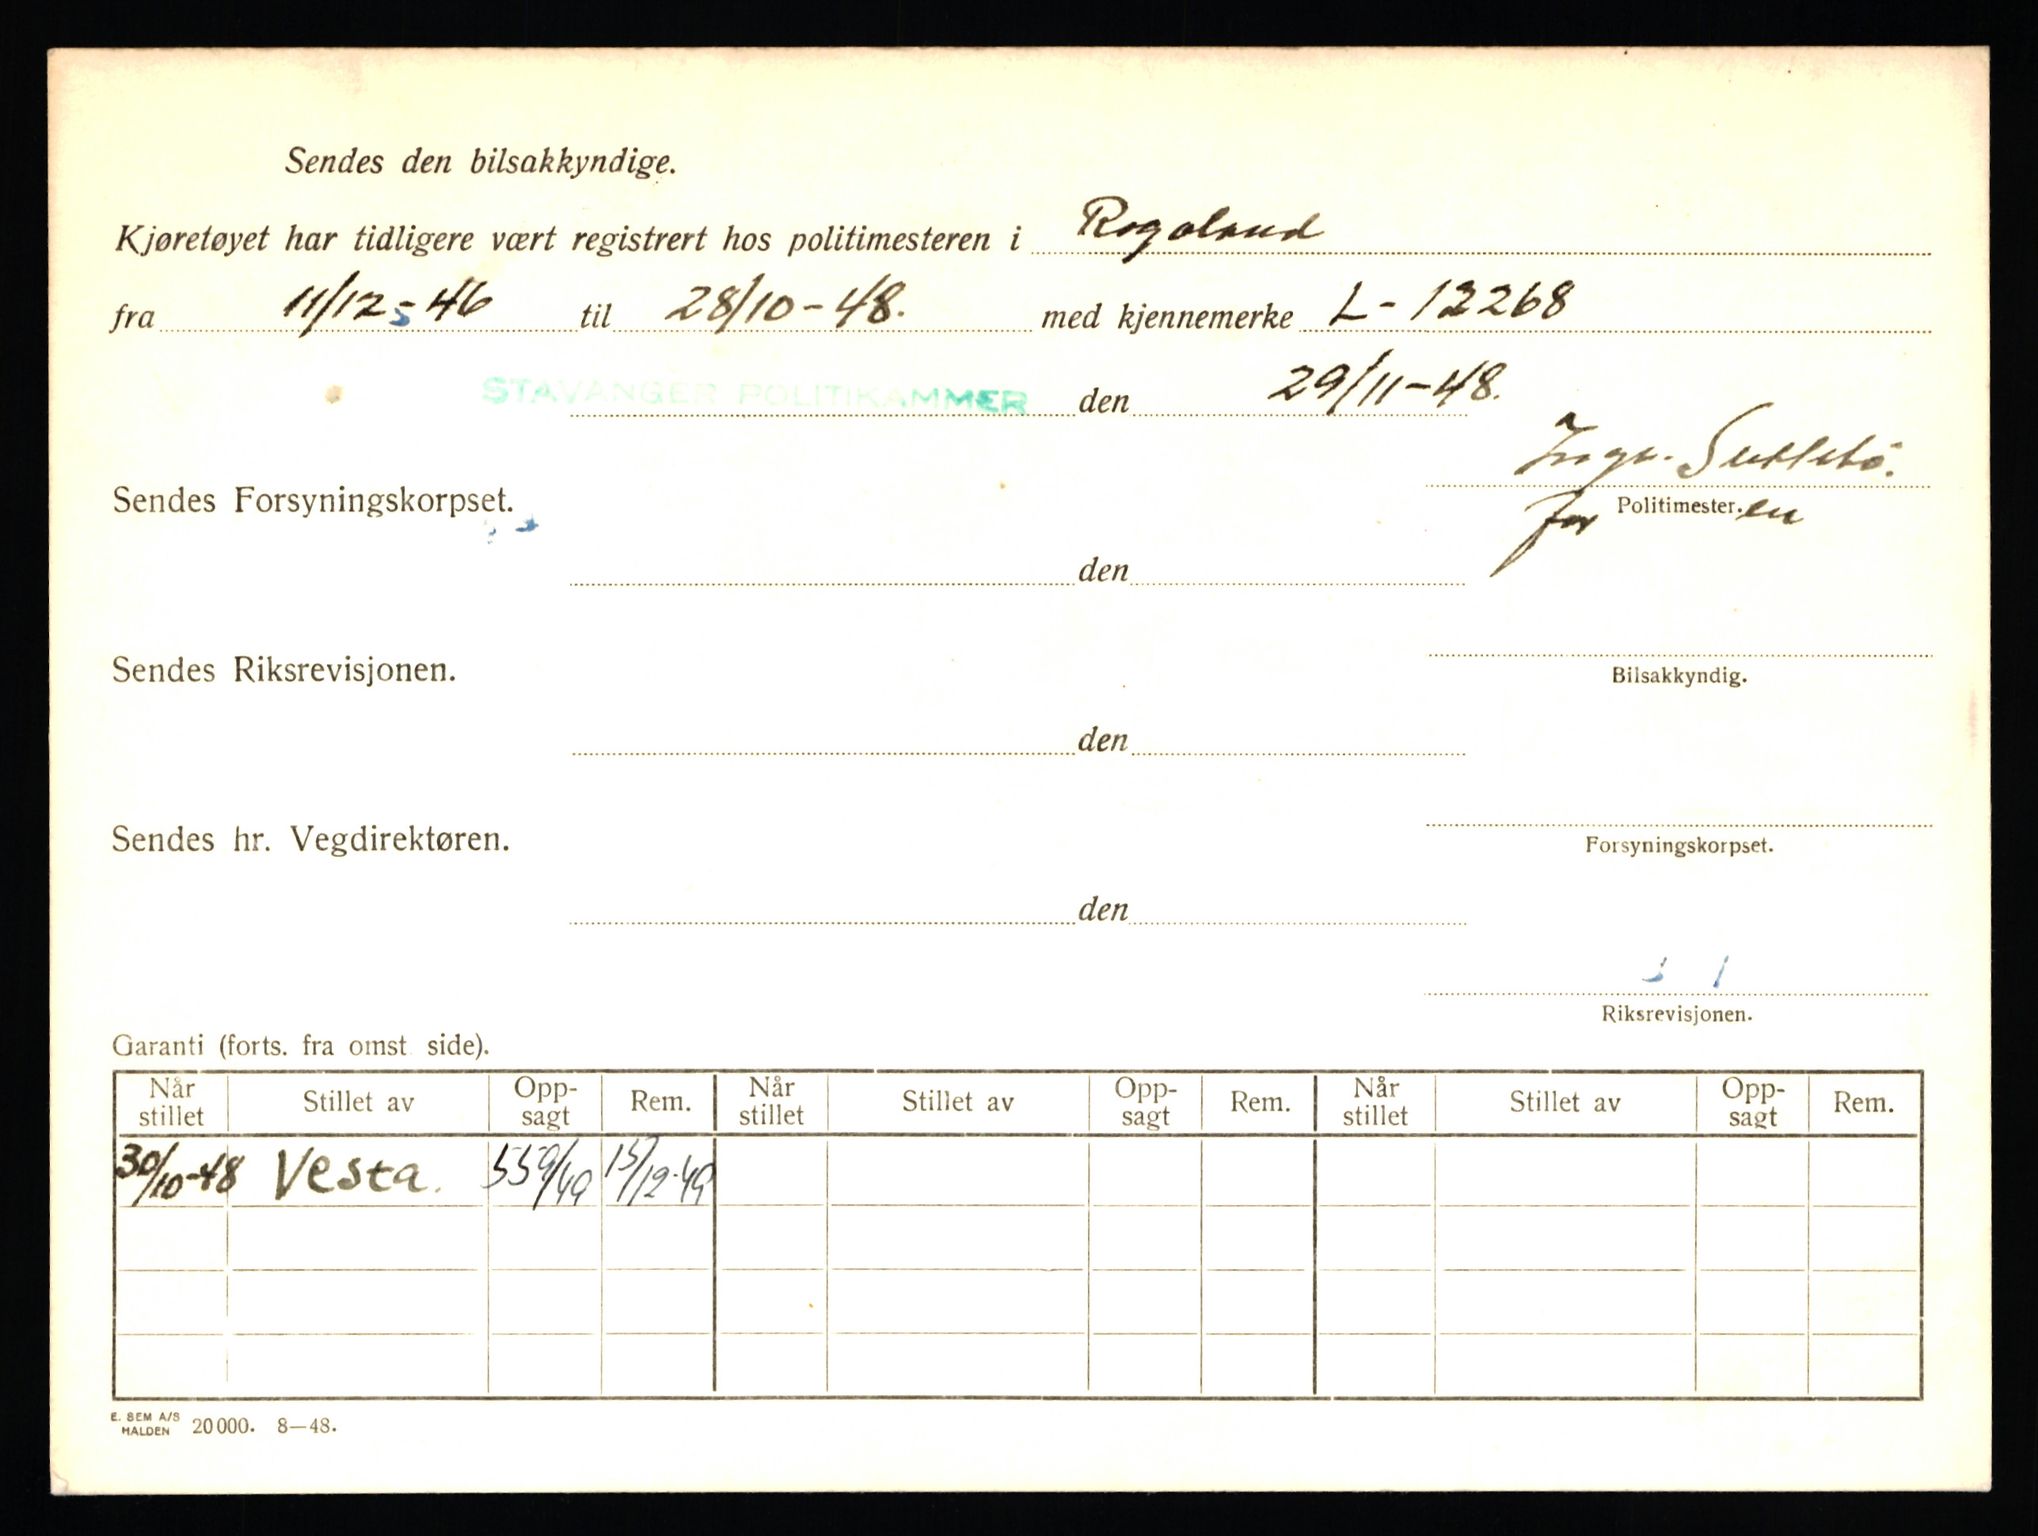 Sendes den bilsakkyndige.
Kjøretøyet har tidligere vært registrert hos politimesteren i Rogaland
fra 11/12-46 til 28/10-48. med kjennemerke L-12268
STAVANGER POLITIKAMMER den 29/11-48.
Sendes Forsyningskorpset.
for Politimester.en
den
Sendes Riksrevisjonen.
Bilsakkyndig.
den
Sendes hr. Vegdirektøren.
Forsyningskorpset.
den
Riksrevisjonen.
Garanti (forts. fra omst side).
Når stillet Stillet av Opp-sagt Rem. Når stillet Stillet av Opp-sagt Rem. Når stillet Stillet av Opp-sagt Rem.
30/10-48 Vesta. 559/49 15/12-49
E. SEM A/S HALDEN 20000. 8—48.